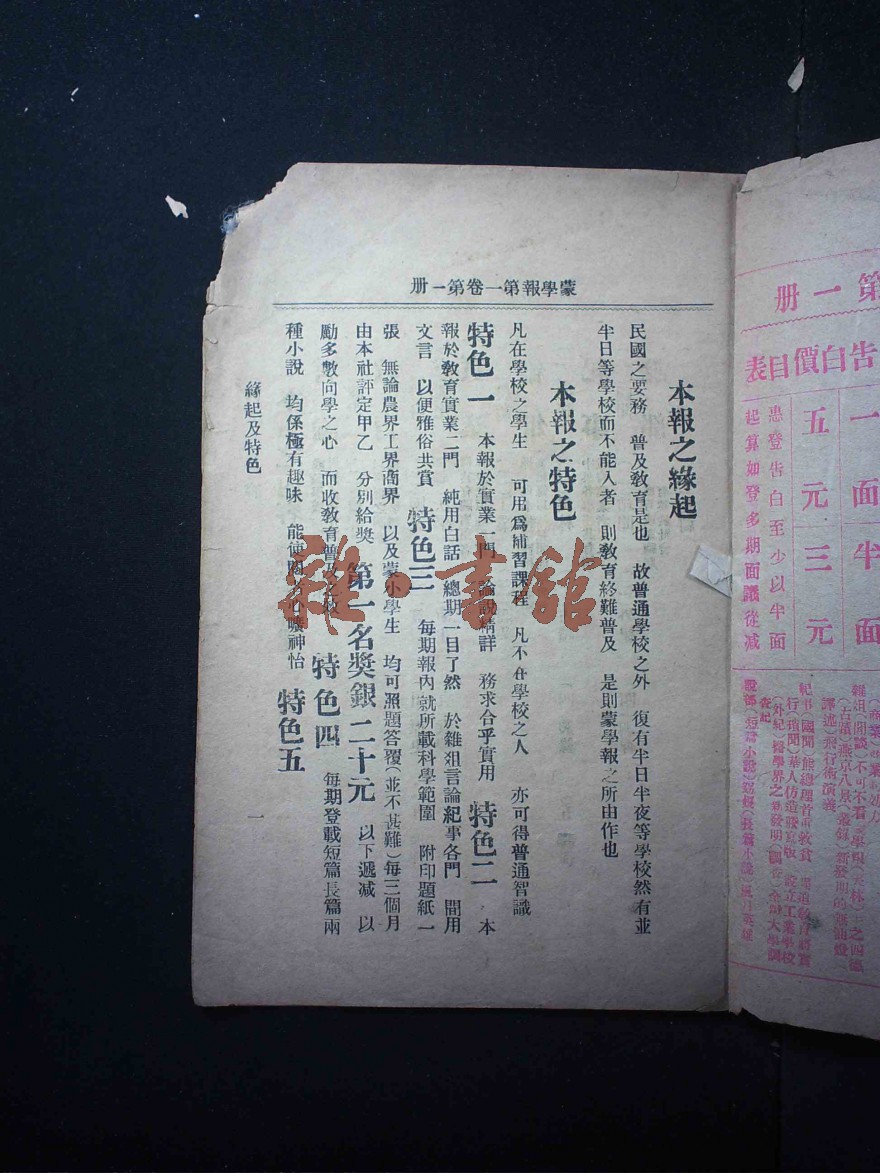 蒙學報第一卷第一册
本報之緣起
民國之要務　普及敎育是也　故普通學校之外　復有半日半夜等學校然有並
半日等學校而不能入者　則敎育終難普及　是則蒙學報之所由作也
本報之特色
凡在學校之學生　可用爲補習課程　凡不在學校之人　亦可得普通智識
特色一　本報於實業一門　論說精詳　務求合乎實用　特色二　本
報於敎育實業二門　純用白話　總期一目了然　於雜俎言論紀事各門　間用
文言　以便雅俗共賞　特色三　每期報內就所載科學範圍　附印題紙一
張　無論農界工界商界　以及蒙小學生　均可照題答覆（並不甚難）每三個月
由本社評定甲乙　分別給獎　第一名獎銀二十元　以下遞减　以
勵多數向學之心　而收敎育普及之效　特色四　每期登載短篇長篇兩
種小說　均係極有趣味　能使閱者心曠神怡　特色五
緣起及特色
一
雜·書館
第一册
告白價目表
一面半面
五元三元
惠登告白至少以半面
起算如登多期面議從减